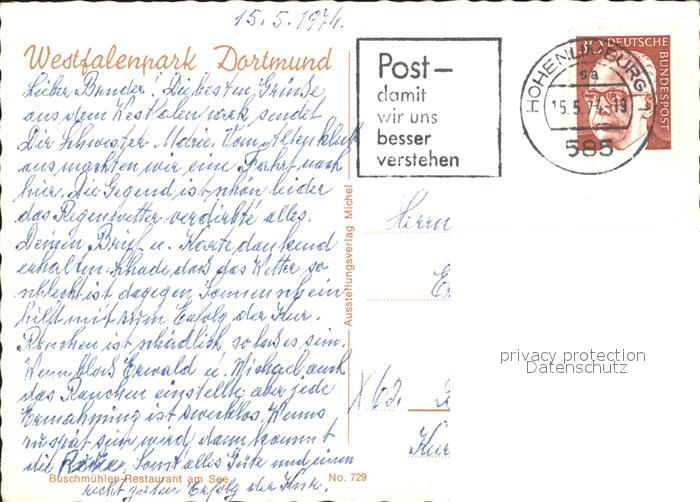 15.5.1974.
Westfalenpark Dortmund
Lieber Bruder! Die besten Grüße
aus dem Westfalenpark sendet
Dir Schwester Marie. Vom Altenklub
aus machten wir eine Fahrt nach
hier. Die Gegend ist schön leider
das Regenwetter verdirbt alles.
Deinen Brief u. Karte dankend
erhalten. Schade daß das Wetter so
schlecht ist dagegen Sonnenschein
hilft mit zum Erfolg der Kur.
Rauchen ist schädlich so laß es sein.
Wenn bloß Erwald u. Michael auch
das Rauchen einstellte, aber jede
Ermahnung ist zwecklos. Wenns
zu spät sein wird dann kommt
die Reue. Sonst alles Gute und einen
recht guten Erfolg der Kur.
Buschmühlen-Restaurant am See
No. 729
Ausstellungsverlag Michel
Post –
damit
wir uns
besser
verstehen
HOHENLIMBURG
sa
15.5.74-18
585
30 DEUTSCHE
BUNDESPOST
Herrn
privacy protection
Datenschutz